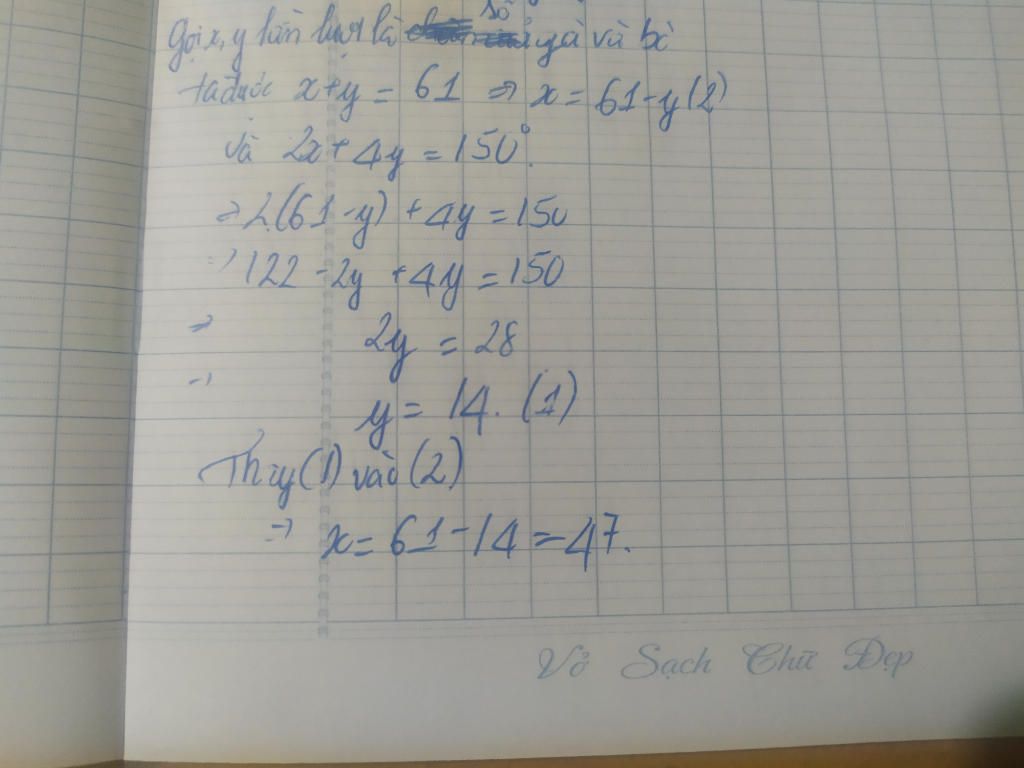 Gọi x, y lần lượt là số gà và bò
ta được x+y = 61 => x = 61-y (2)
và 2x + 4y = 150.
=> 2(61-y) + 4y = 150
=> 122 - 2y + 4y = 150
=> 2y = 28
=> y = 14. (1)
Thay (1) vào (2)
=> x = 61 - 14 = 47.
Vở Sạch Chữ Đẹp